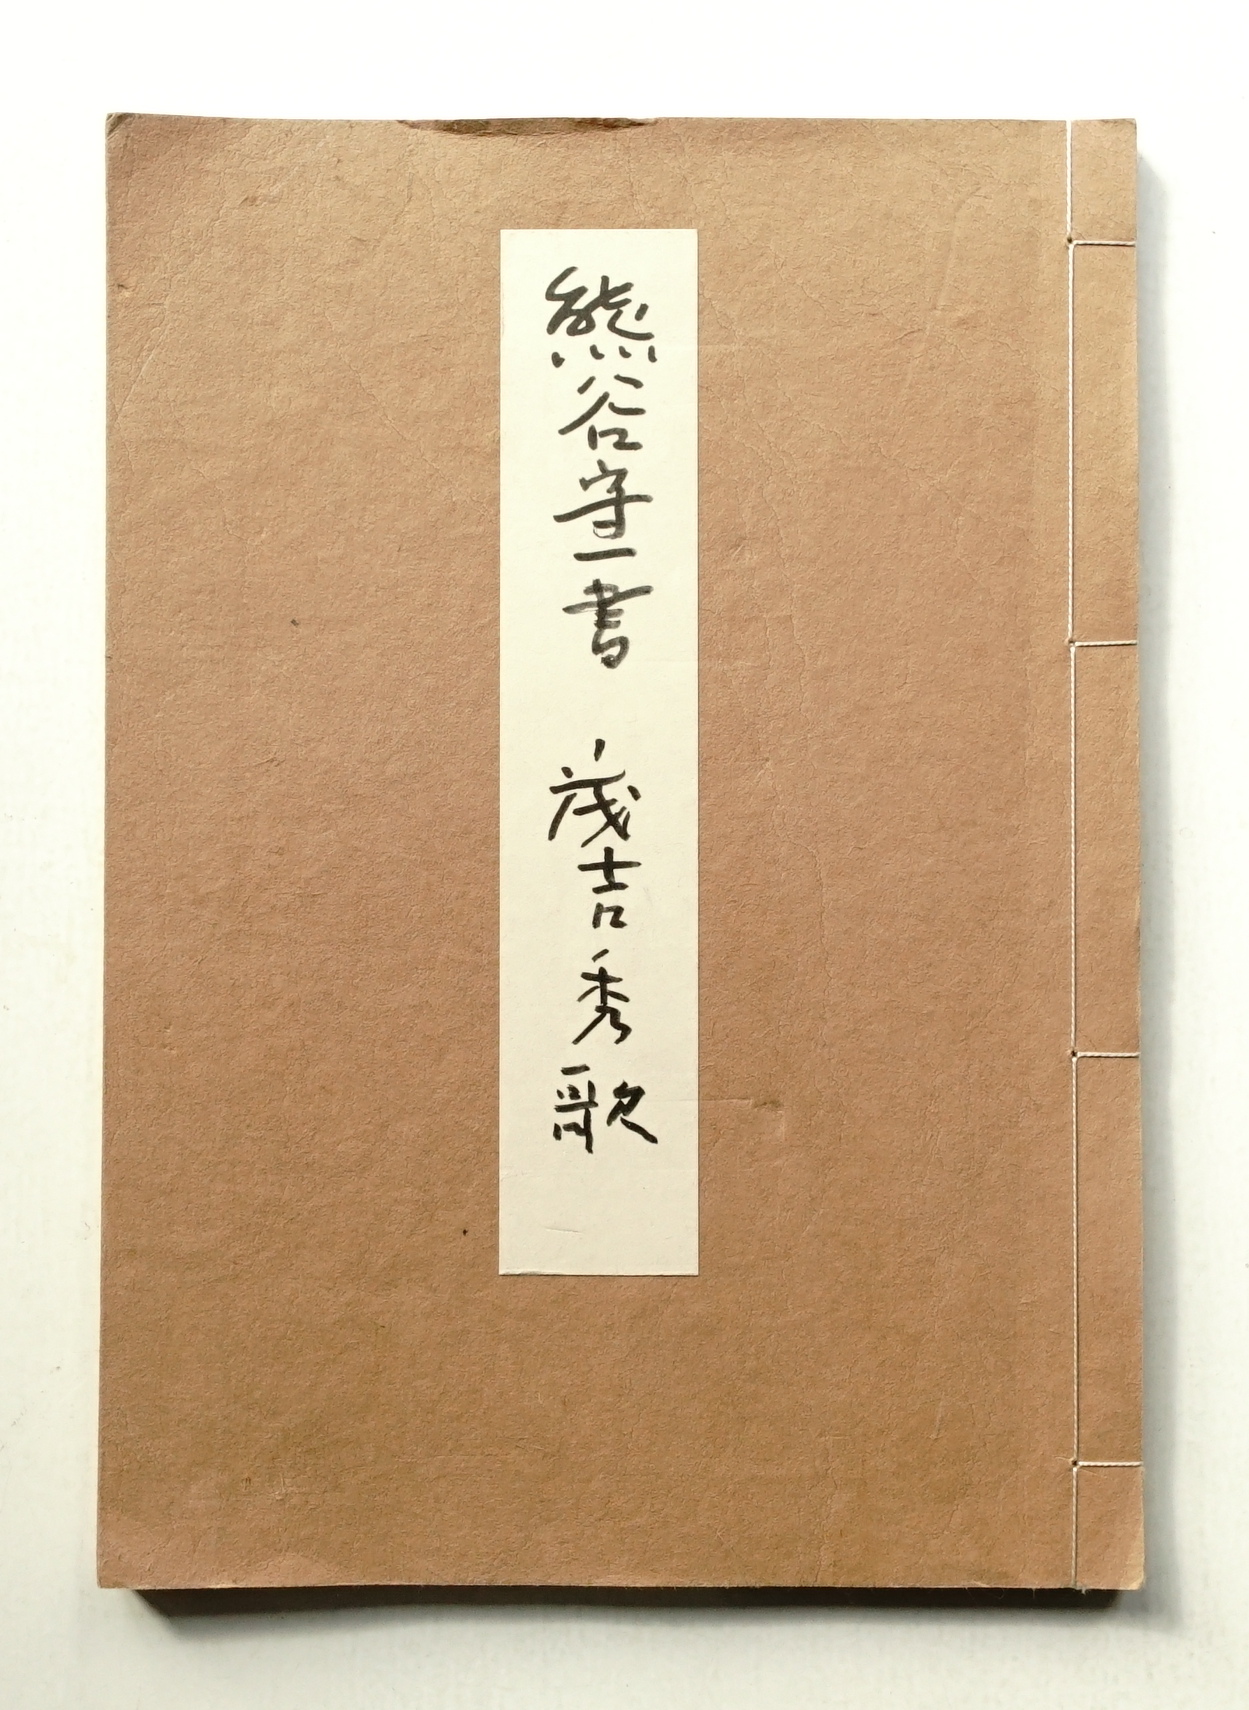 熊谷守一書 茂吉秀歌